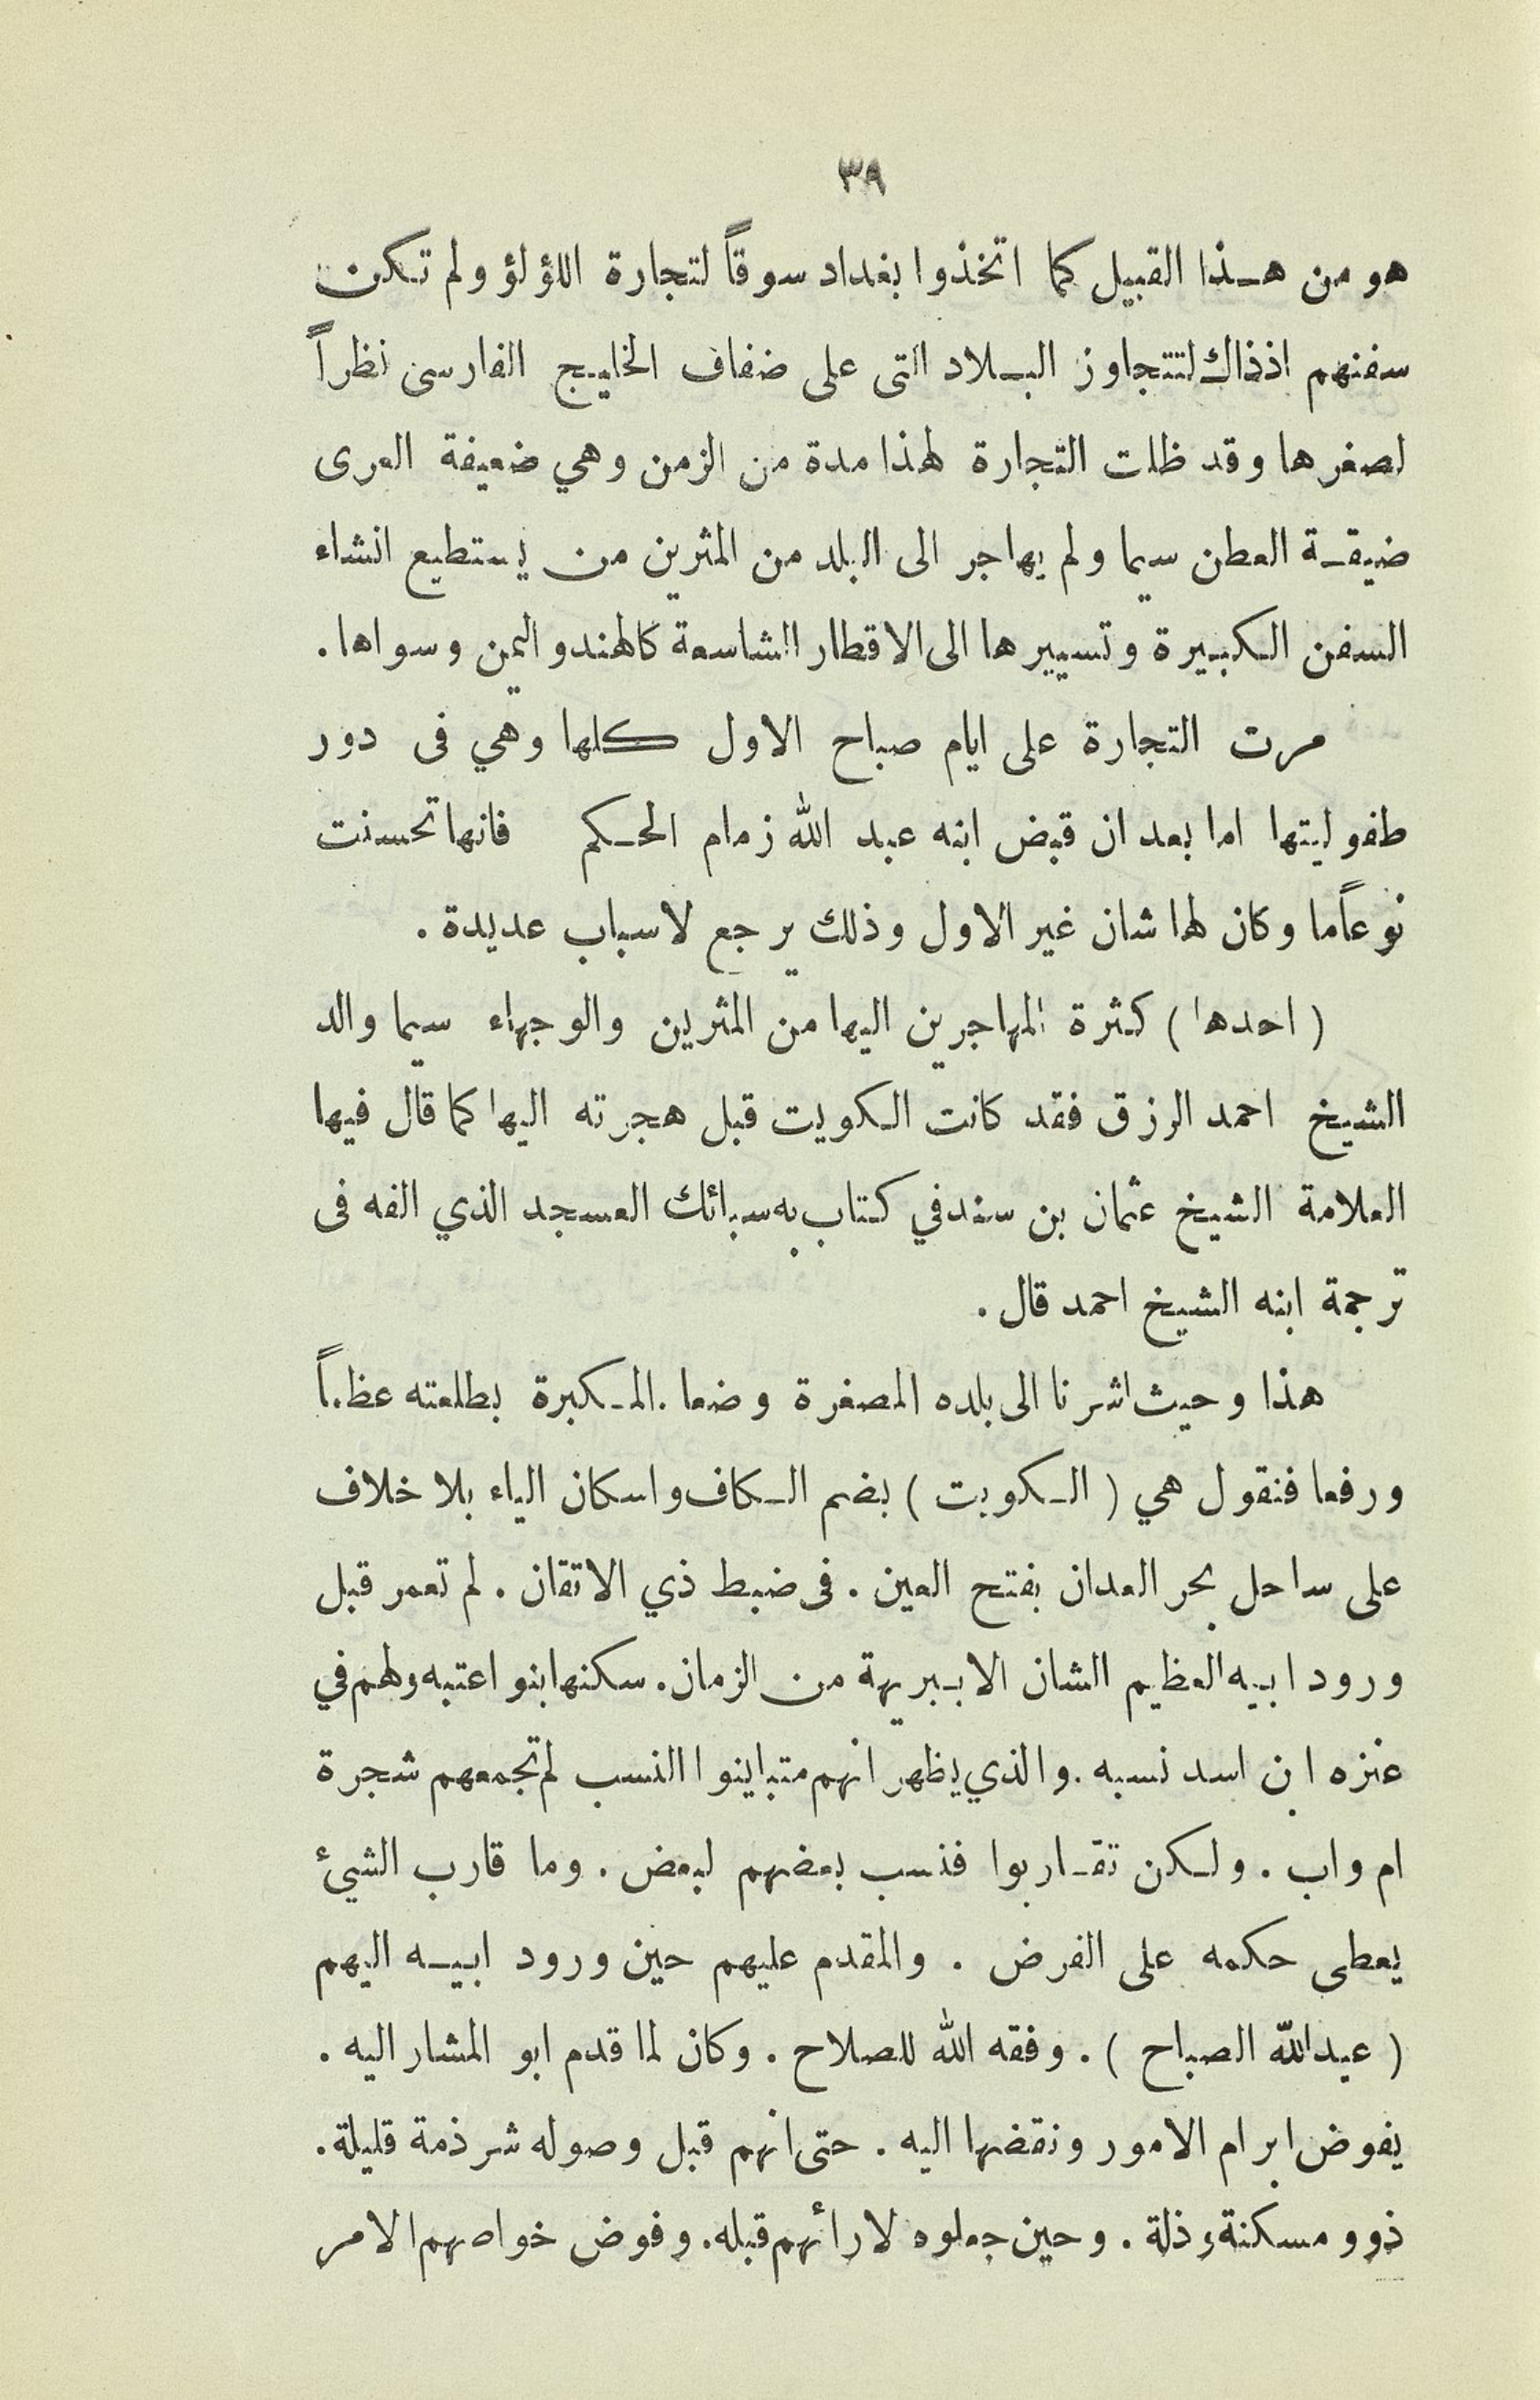 ٣٩
هو من هذا القبيل كما اتخذوا بغداد سوقاً لتجارة اللؤلؤ ولم تكن
سفنهم اذذاك لتتجاوز البلاد التى على ضفاف الخليج الفارسى نظراً
لصغرها وقد ظلت التجارة لهذا مدة من الزمن وهي ضعيفة العرى
ضيقة العطن سيما ولم يهاجر الى البلد من المثرين من يستطيع انشاء
السفن الكبيرة وتسييرها الى الاقطار الشاسعة كالهند واليمن وسواها .
مرت التجارة على ايام صباح الاول كلها وهي فى دور
طفوليتها اما بعد ان قبض ابنه عبد الله زمام الحكم فانها تحسنت
نوعاً ما وكان لها شان غير الاول وذلك يرجع لاسباب عديدة .
( احدها ) كثرة المهاجرين اليها من المثرين والوجهاء سيما والد
الشيخ احمد الرزق فقد كانت الكويت قبل هجرته اليها كما قال فيها
العلامة الشيخ عثمان بن سند في كتاب به سبائك العسجد الذي الفه فى
ترجمة ابنه الشيخ احمد قال .
هذا وحيث اشرنا الى بلده المصغرة وضعا . المكبرة بطلعته عظماً
ورفعا فنقول هي ( الكويت ) بضم الكاف واسكان الياء بلا خلاف
على ساحل بحر العدان بفتح العين . فى ضبط ذي الاتقان . لم تعمر قبل
ورود ابيه العظيم الشان الا ببريهة من الزمان . سكنها بنو اعتبه ولهم في
عنزه ابن اسد نسبه . والذي يظهر انهم متباينوا النسب لم تجمعهم شجرة
ام واب . ولكن تقاربوا فنسب بعضهم لبعض . وما قارب الشيئ
يعطى حكمه على الفرض . والمقدم عليهم حين ورود ابيه اليهم
( عبدالله الصباح ) . وفقه الله للصلاح . وكان لما قدم ابو المشار اليه .
يفوض ابرام الامور ونقضها اليه . حتى انهم قبل وصوله شرذمة قليلة .
ذوو مسكنة وذلة . وحين جعلوه لارأئهم قبله . وفوض خواصهم الامر